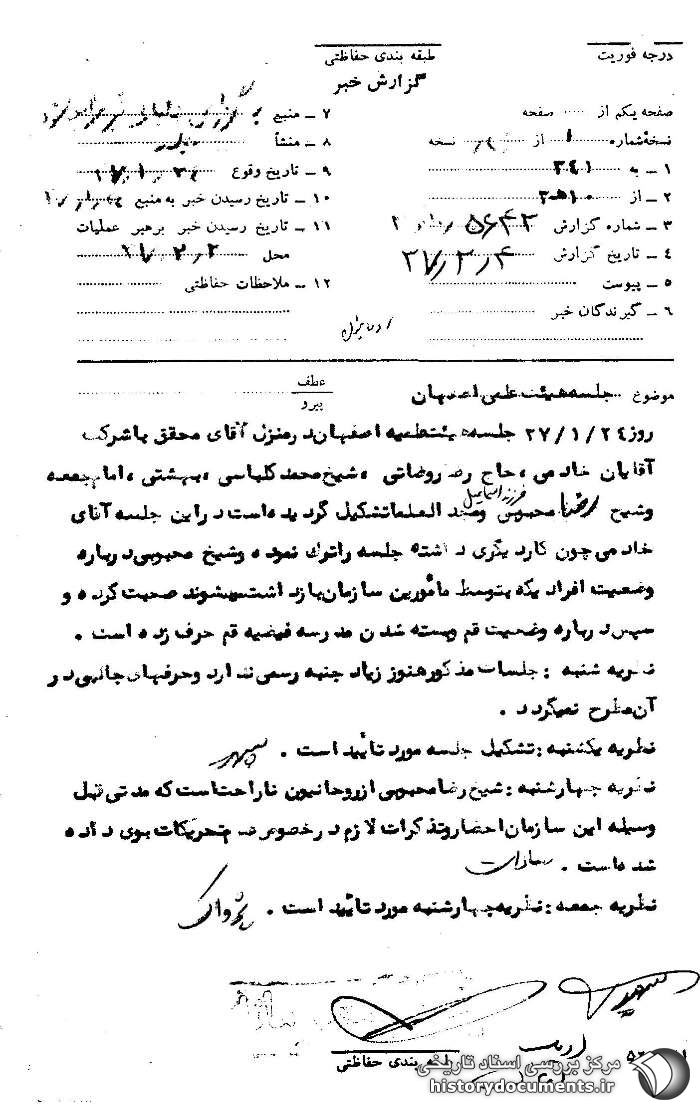 درجه فوریت
طبقه بندی حفاظتی
گزارش خبر
صفحه یکم از صفحه
نسخهٔ شماره ۱ از نسخه
۱ ــ به ۳۴۱
۲ ــ از ۱۰ ه ۲
۳ ــ شماره گزارش ۵۶۴۳
۴ ــ تاریخ گزارش ۳۷/۲/۴
۵ ــ پیوست
۶ ــ گیرندگان خبر
۷ ــ منبع
۸ ــ منشأ
۹ ــ تاریخ وقوع
۱۰ ــ تاریخ رسیدن خبر به منبع
۱۱ ــ تاریخ رسیدن خبر برهبر عملیات
محل ۳۷/۲/۲
۱۲ ــ ملاحظات حفاظتی
موضوع جلسه هیئت علمی اصفهان
عطف
پیرو
روز ۲۷/۱/۲٤ جلسه هیئت علمیه اصفهان در منزل آقای محقق با شرکت
آقایان خادمی ، حاج رضا روضاتی ، شیخ محمد کلباسی ، بهشتی ، امام جمعه
وشیخ رضا محبوبی فرزند اسماعیل ومجد العلما تشکیل گردیده است در این جلسه آقای
خادمی چون کار دیگری داشته جلسه را ترک نموده وشیخ محبوبی درباره
وضعیت افرادیکه بتوسط مأمورین سازمان بازداشت میشوند صحبت کرده و
سپس درباره وضعیت قم وبسته شدن مدرسه فیضیه قم حرف زده است .
نظریه شنبه : جلسات مذکور هنوز زیاد جنبه رسمی ندارد وحرفهای جالبی در
آن مطرح نمیگردد .
نظریه یکشنبه : تشکیل جلسه مورد تأیید است . سپهر
نظریه چهارشنبه : شیخ رضا محبوبی از روحانیون ناراحت است که مدتی قبل
وسیله این سازمان احضار وتذکرات لازم در خصوص عدم تحریکات بوی داده
شده است . سادات
نظریه جمعه : نظریه چهارشنبه مورد تأیید است . پژواک
طبقه بندی حفاظتی
مرکز بررسی اسناد تاریخی
historydocuments.ir